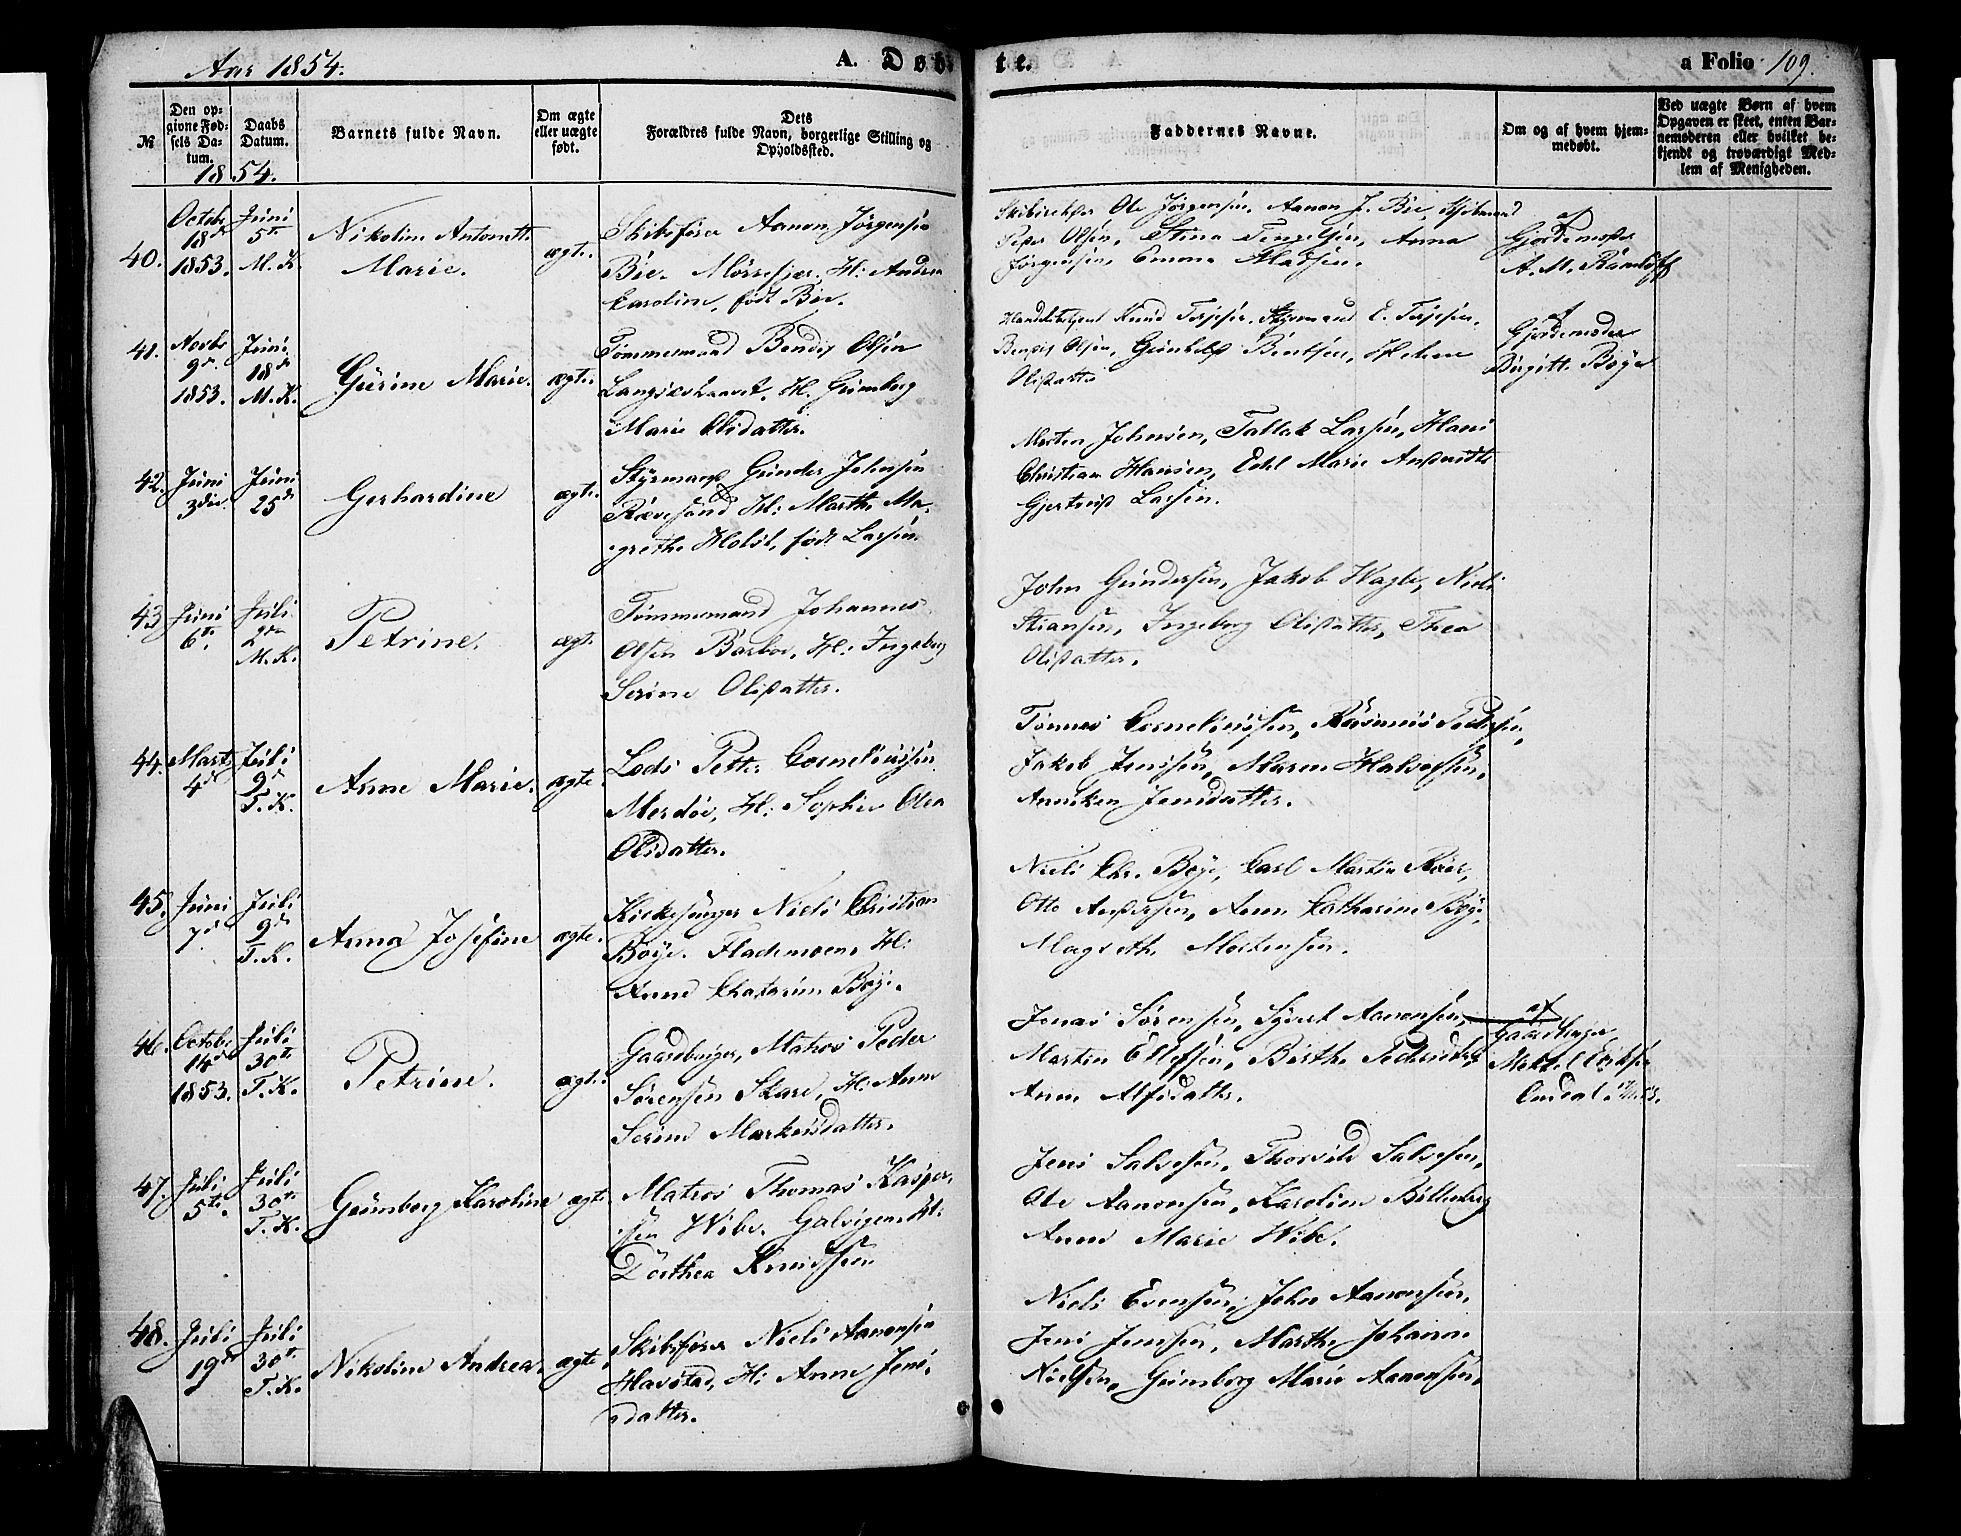 Aar 1854.
A. Døb-
te.
a Folio 109.
№
Den op-
givne Fød-
sels Da-
tum.
Daabs
Datum.
Barnets fulde Navn.
Om ægte
eller uægte
født.
Dets
Forældres fulde Navn, borgerlige Stilling og
Opholdssted.
Faddernes Navne.
Om og af hvem hjem-
medøbt.
Ved uægte Børn af hvem
Opgaven er skeet, enten Bar-
nemoderen eller hvilket be-
kjendt og troværdigt Med-
lem af Menigheden.
1854.
40.
Octobr
18de
1853.
Juni
5te
M. K.
Nikoline Antonette
Marie.
ægte.
Skibsfører Aanon Jørgensen
Bie. H: Andrea
Caroline, født Bie.
Ole Jørgensen, Aanon J. Bie,
Peder Olsen, Stina Anna
Jørgensen, Emma Madsen.
af
Gjordemoder
A. M.
41.
Novbr
9de
1853.
Juni
18de
M. K.
Gurine Marie.
ægte.
Tømmermand Bendix Olsen
H. Gunborg
Marie Olsdatter.
Knud Terjesen, Styrmand E. Terjesen,
Bendix Olsen, Gunhild Bentsen, Helene
Olsdatter
af
Gjordemoder
Birgitte Bøye
42.
Juni
3die
Juni
25de
Gerhardine
ægte.
Styrmand Gunder Johnsen
Revesand H: Marthe Ma-
grethe Holst, født Larsen.
Morten Johnsen, Tallak Larsen, Hans
Christian Hansen, Edel Marie
Gjertrud Larsen.
43
Juni
6te.
Juli
2den
M. K.
Petrine.
ægte.
Tømmermand Johannes
Olsen Barbo, H: Ingeborg
Serine Olsdatter.
John Gundersen, Jakob Niels
Stiansen, Ingeborg Olsdatter, Thea
Olsdatter.
44.
Marts
4de
Juli
9de
T. K.
Anne Marie.
ægte.
Lods Petter Corneliussen
Merdøe, H: Sophie Olea
Olsdatter.
Tønnes Corneliussen, Rasmus Pedersen,
Jakob Jensen, Maren Halvorsen,
Anniken Jensdatter.
45.
Juni
7de
Juli
9de
T. K.
Anna Josefine
ægte.
Kirkesanger Niels Christian
Bøye. Flademoen H:
Anne Chatarine Bøye.
Niels Chr. Bøye, Carl Martin
Otto Andersen, Anne Catharine Bøye,
Magrethe Mortensen.
46.
Octobr
14de
1853.
Juli
30te
T. K.
Petrine.
ægte.
Gaardbruger, Matros Peder
Sørensen Skare, H: Anne
Serine Markusdatter.
Jonas Sørensen, Syvert Aanonsen,
Martin Ellefsen, Birthe Pedersdtr
Anne Alfsdatter.
af
Gaardbruger
47.
Juli
5te.
Juli
30te
T. K.
Gunborg Karoline
ægte.
Matros Thomas Kasper-
sen Wibe. Galvigen H:
Dorthea Knudssen
Jens Salvesen, Thorvild Salvesen,
Ole Aanonsen, Karoline
Anne Marie Wibe.
48.
Juli
19de
Juli
30te
T. K.
Nikoline Andrea.
ægte
Skibsfører Niels Aanonsen
Havstad, H: Anne Jens-
datter.
Niels Evensen, John Aanonsen,
Jens Jenssen, Marthe Johanne
Nielsen, Gunborg Marie Aanonsen.